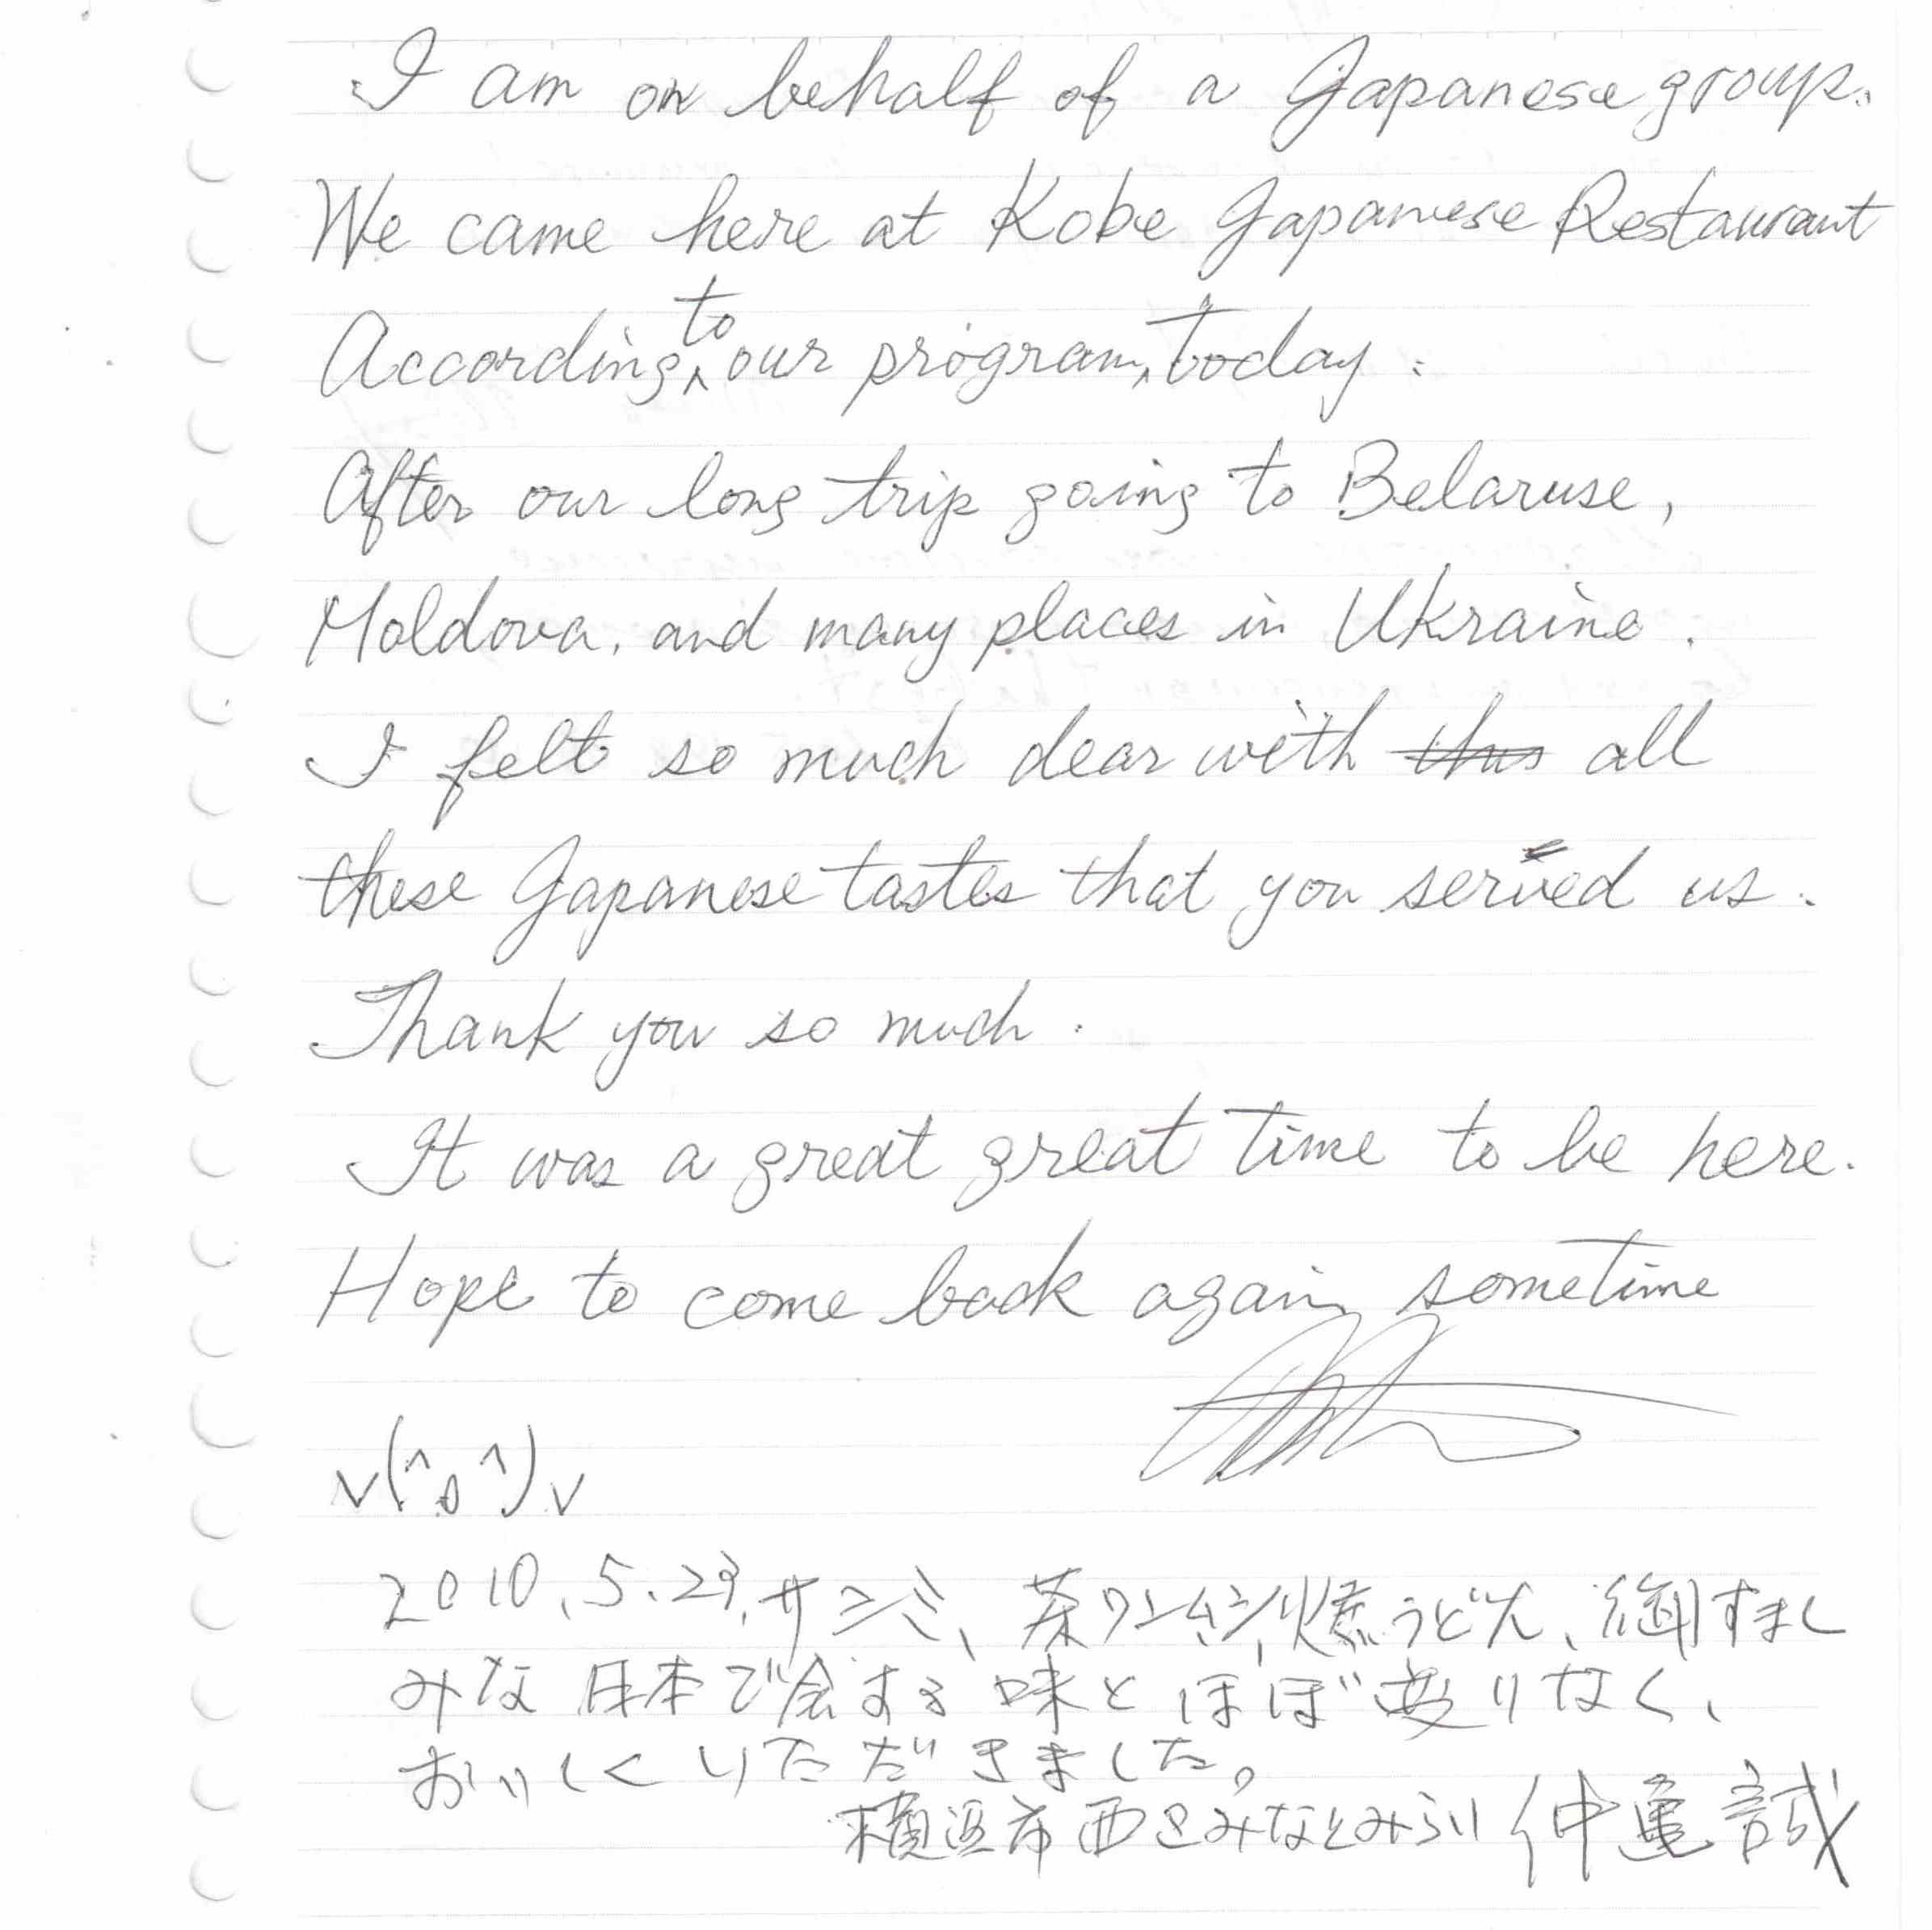 I am on behalf of a Japanese group.
We came here at Kobe Japanese Restaurant
According to our program, today.
After our long trip going to Belaruse,
Moldova, and many places in Ukraine.
I felt so much dear with thus all
these Japanese tastes that you served us.
Thank you so much.
It was a great great time to be here.
Hope to come back again sometime
v(^o^)v
2010.5.29. サシミ、茶ワンムシ、焼うどん、御すまし
みな日本で食する味とほぼ変りなく、
おいしくいただきました。
横浜市西区みなとみらい 仲亀 誠